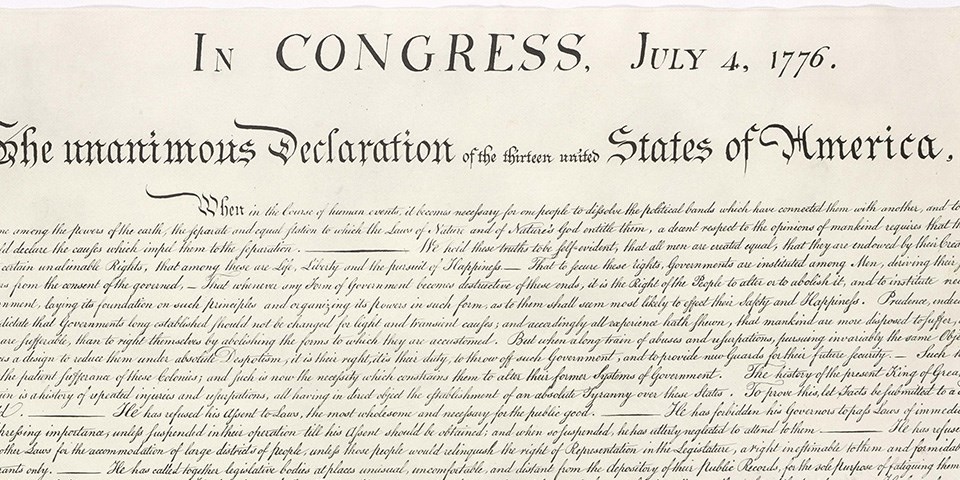 In CONGRESS, July 4, 1776.
The unanimous Declaration of the thirteen united States of America,
When in the Course of human events, it becomes necessary for one people to dissolve the political bands which have connected them with another, and to
among the powers of the earth, the separate and equal station to which the Laws of Nature and of Nature's God entitle them, a decent respect to the opinions of mankind requires that
declare the causes which impel them to the separation. ——— We hold these truths to be self-evident, that all men are created equal, that they are endowed by their
certain unalienable Rights, that among these are Life, Liberty and the pursuit of Happiness.— That to secure these rights, Governments are instituted among Men, deriving their
from the consent of the governed,— That whenever any Form of Government becomes destructive of these ends, it is the Right of the People to alter or to abolish it, and to institute
laying its foundation on such principles and organizing its powers in such form, as to them shall seem most likely to effect their Safety and Happiness. Prudence,
dictate that Governments long established should not be changed for light and transient causes; and accordingly all experience hath shewn, that mankind are more disposed to suffer,
are sufferable, than to right themselves by abolishing the forms to which they are accustomed. But when a long train of abuses and usurpations, pursuing invariably the same
a design to reduce them under absolute Despotism, it is their right, it is their duty, to throw off such Government, and to provide new Guards for their future security.— Such
the patient sufferance of these Colonies; and such is now the necessity which constrains them to alter their former Systems of Government. The history of the present King of
is a history of repeated injuries and usurpations, all having in direct object the establishment of an absolute Tyranny over these States. To prove this, let Facts be submitted to a
——— He has refused his Assent to Laws, the most wholesome and necessary for the public good. ——— He has forbidden his Governors to pass Laws of
pressing importance, unless suspended in their operation till his Assent should be obtained; and when so suspended, he has utterly neglected to attend to them. ——— He has
other Laws for the accommodation of large districts of people, unless those people would relinquish the right of Representation in the Legislature, a right inestimable to them and
only. ——— He has called together legislative bodies at places unusual, uncomfortable, and distant from the depository of their public Records, for the sole purpose of fatiguing them